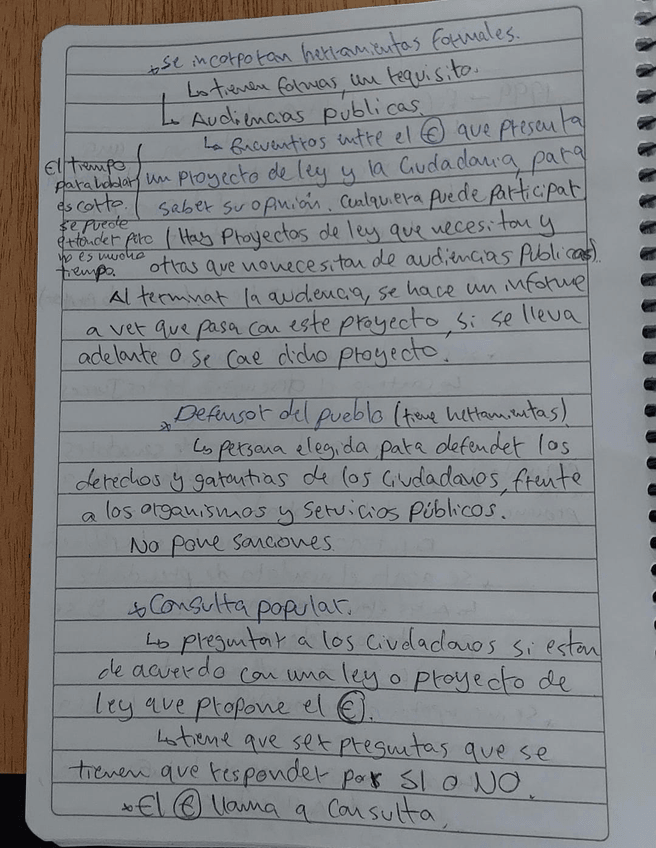 * Se incorporan herramientas formales.
↳ tienen formas, un requisito.
↳ Audiencias públicas.
↳ Encuentros entre el Ⓔ que presenta
un proyecto de ley y la Ciudadania, para
saber su opinión. Cualquiera puede participar
El tiempo
para hablar
es corto.
se puede
extender pero
no es mucho
tiempo.
(Hay Proyectos de ley que necesitan y
otras que no necesitan de audiencias Públicas).
Al terminar la audencia, se hace un informe
a ver que pasa con este proyecto, si se lleva
adelante o se cae dicho proyecto.
* Defensor del pueblo (tiene herramientas)
↳ persona elegida para defender los
derechos y garantias de los Ciudadanos, frente
a los organismos y Servicios Públicos.
No pone sanciones
* Consulta popular.
↳ preguntar a los ciudadanos si estan
de acuerdo con una ley o proyecto de
ley que propone el Ⓔ.
↳ tiene que ser preguntas que se
tienen que responder por SI o NO.
* El Ⓔ llama a consulta,